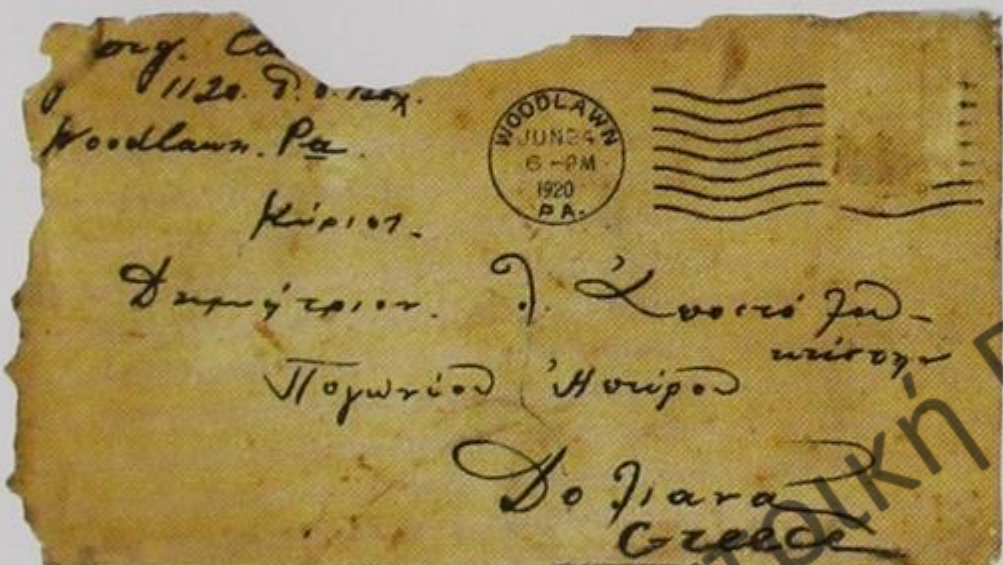 1120. P.O. Box.
Woodlawn. Pa.
WOODLAWN
JUN 24
6-PM
1920
PA.
Κύριον.
Δημήτριον. Λ. Ἀποστόλου-
κτίστην
Πογωνίου Ἠπείρου
Δολιανα
Greece